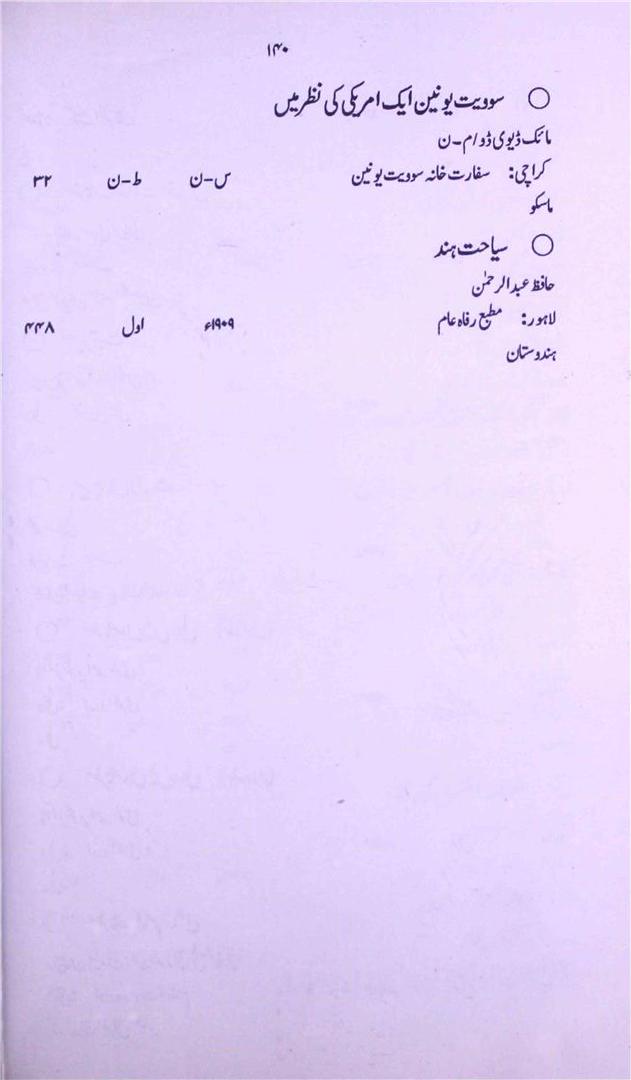 ۱۴۰
○ سوویت یونین ایک امریکی کی نظر میں
مائک ڈیوی ڈو ام-ن
کراچی: سفارت خانہ سوویت یونین س-ن ط-ن ۳۲
ماسکو
○ سیاحت ہند
حافظ عبدالرحمٰن
لاہور: مطبع رفاہ عام ۱۹۰۹ء اول ۴۴۸
ہندوستان